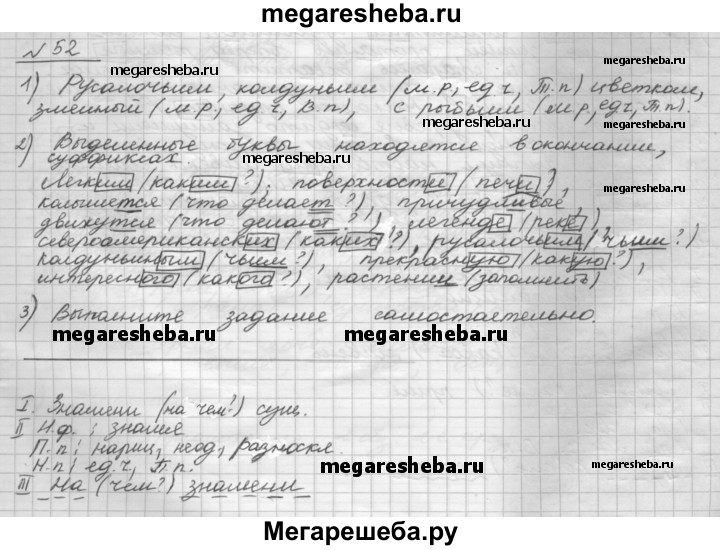 megaresheba.ru
№52
megaresheba.ru
megaresheba.ru
1) Русалочьим, колдуньим (м.р, ед.ч, Т.п) цветком,
змеиный (м.р, ед.ч, В.п), с рыбьим (м.р, ед.ч, Т.п).
megaresheba.ru
megaresheba.ru
2) Выделенные буквы находятся в окончании,
megaresheba.ru
суффиксах.
Легким (каким?), поверхности (печи),
колышется (что делает?), причудливые
движутся (что делают?), легенде (реке),
североамериканских (каких?), русалочьим (чьим?)
колдуньиным (чьим?), прекрасную (какую?),
интересного (какого?), растении (запомнить)
3) Выполните задание самостоятельно.
megaresheba.ru megaresheba.ru megaresheba.ru
I. Знамени (на чем?) сущ.
II Н.ф.; знамя
П.п; нариц, неод, разноскл.
Н.п; ед.ч, П.п.
megaresheba.ru megaresheba.ru
III На (чем?) знамени
Мегарешеба.ру